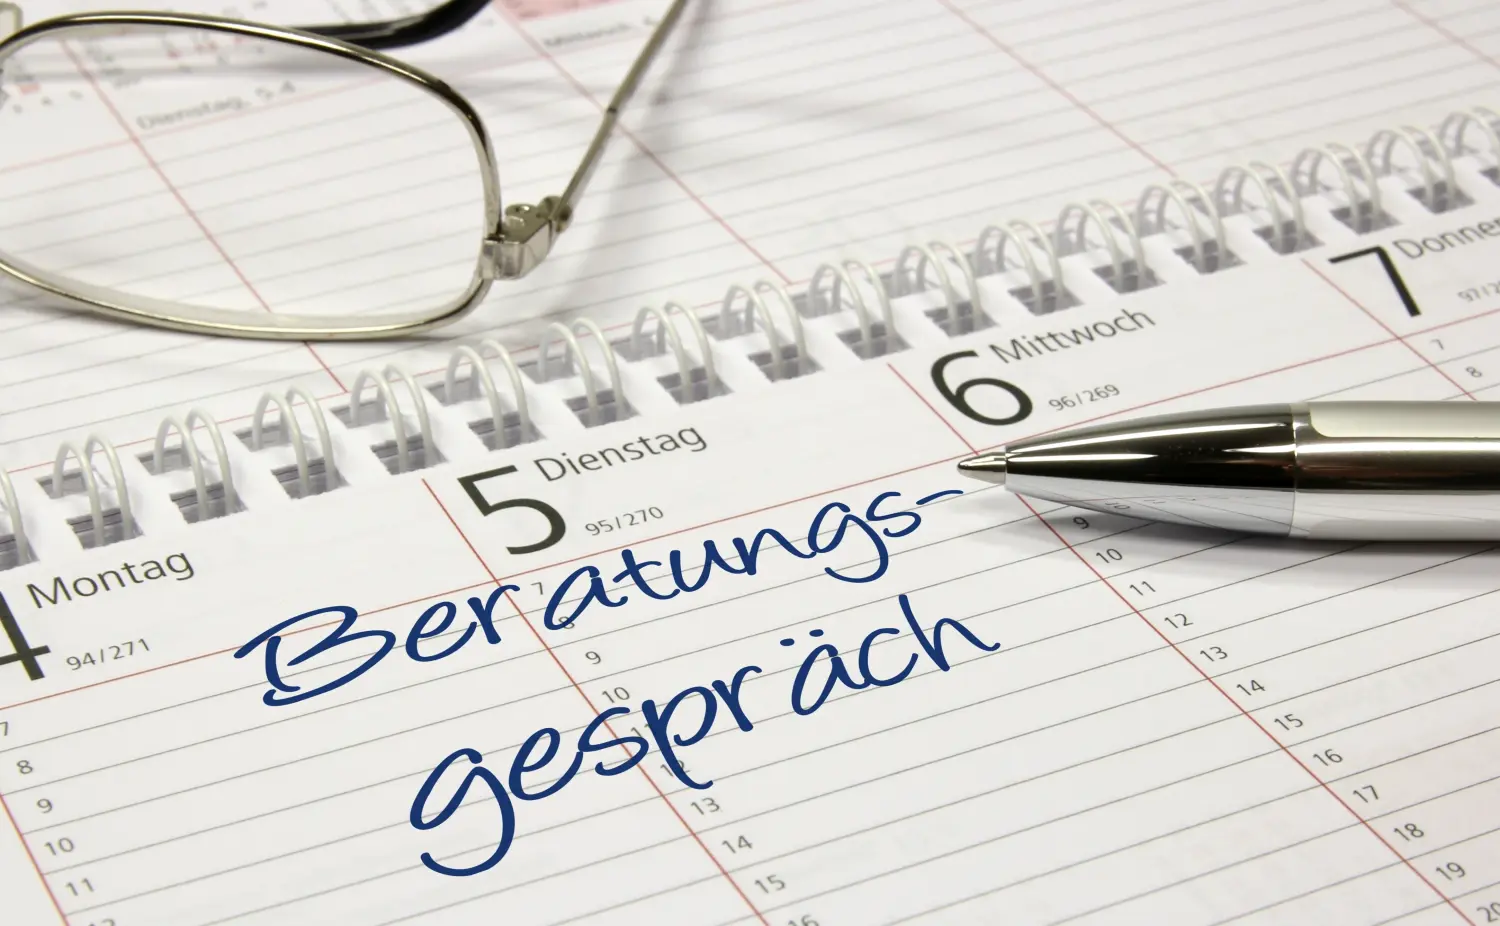 Dienstag, 5.4
Mittwoch
4 Montag
94/271
5 Dienstag
95/270
6 Mittwoch
96/269
7
Beratungs-
gespräch
7
8
9
10
11
7
8
9
10
11
12
13
14
15
16
9
10
11
12
13
14
15
16
17
18
19
20
7
8